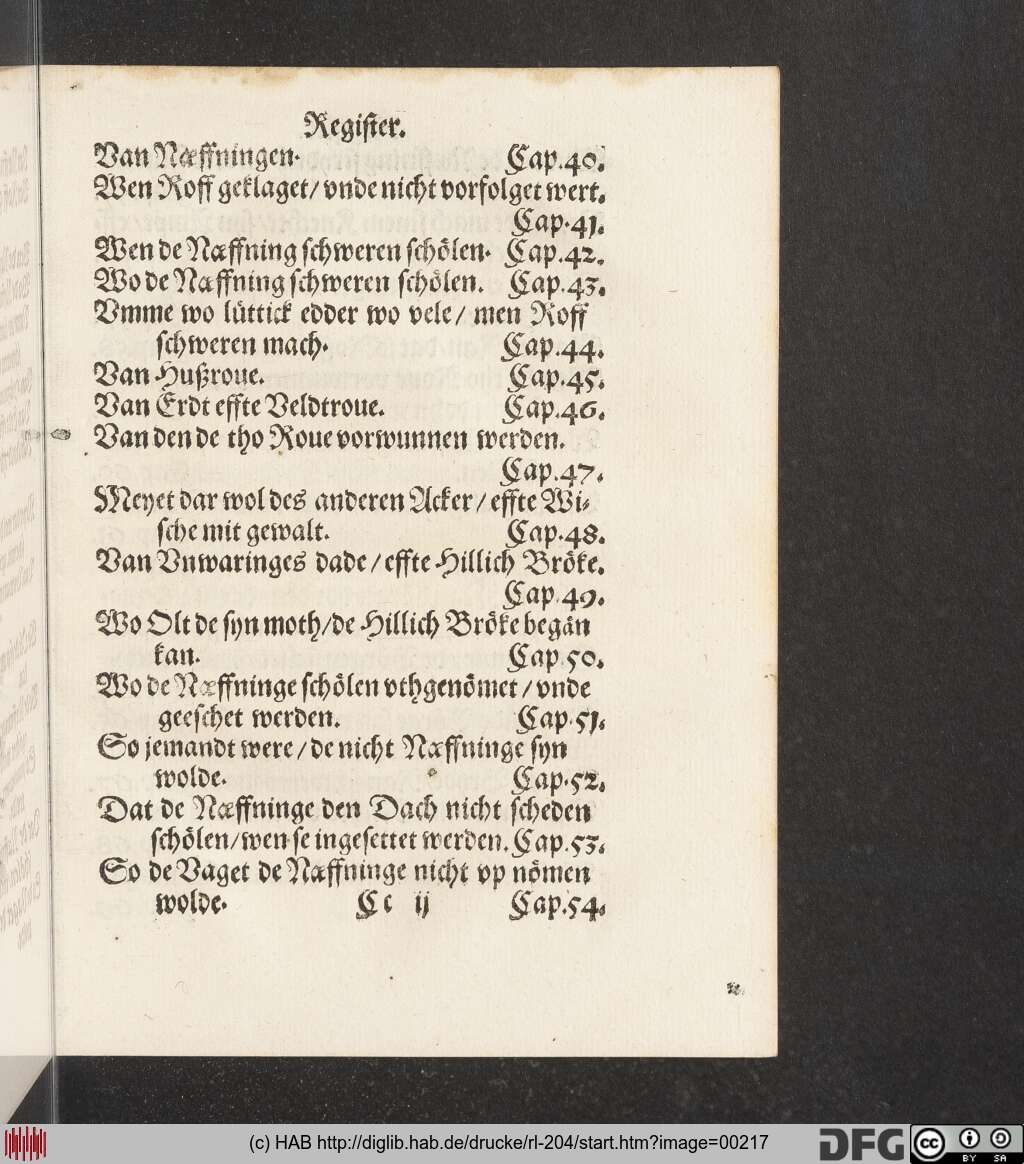 Register.
Van Næffningen. Cap.40.
Wen Roff geklaget/ vnde nicht vorfolget wert.
Cap.41.
Wen de Næffning schweren schölen. Cap.42.
Wo de Næffning schweren schölen. Cap.43.
Vmme wo lüttick edder wo vele/ men Roff
schweren mach. Cap.44.
Van Hußroue. Cap.45.
Van Erdt effte Veldtroue. Cap.46.
Van den de tho Roue vorwunnen werden.
Cap.47.
Meyet dar wol des anderen Acker/ effte Wi-
sche mit gewalt. Cap.48.
Van Vnwaringes dade/ effte Hillich Bröke.
Cap.49.
Wo Olt de syn moth/de Hillich Bröke begån
kan. Cap.50.
Wo de Næffninge schölen vthgenömet/ vnde
geeschet werden. Cap.51.
So jemandt were/ de nicht Næffninge syn
wolde. Cap.52.
Dat de Næffninge den Dach nicht scheden
schölen/ wen se ingesettet werden. Cap.53.
So de Vaget de Næffninge nicht vp nömen
wolde. Cc ij Cap.54.
(c) HAB http://diglib.hab.de/drucke/rl-204/start.htm?image=00217
DFG
cc BY SA